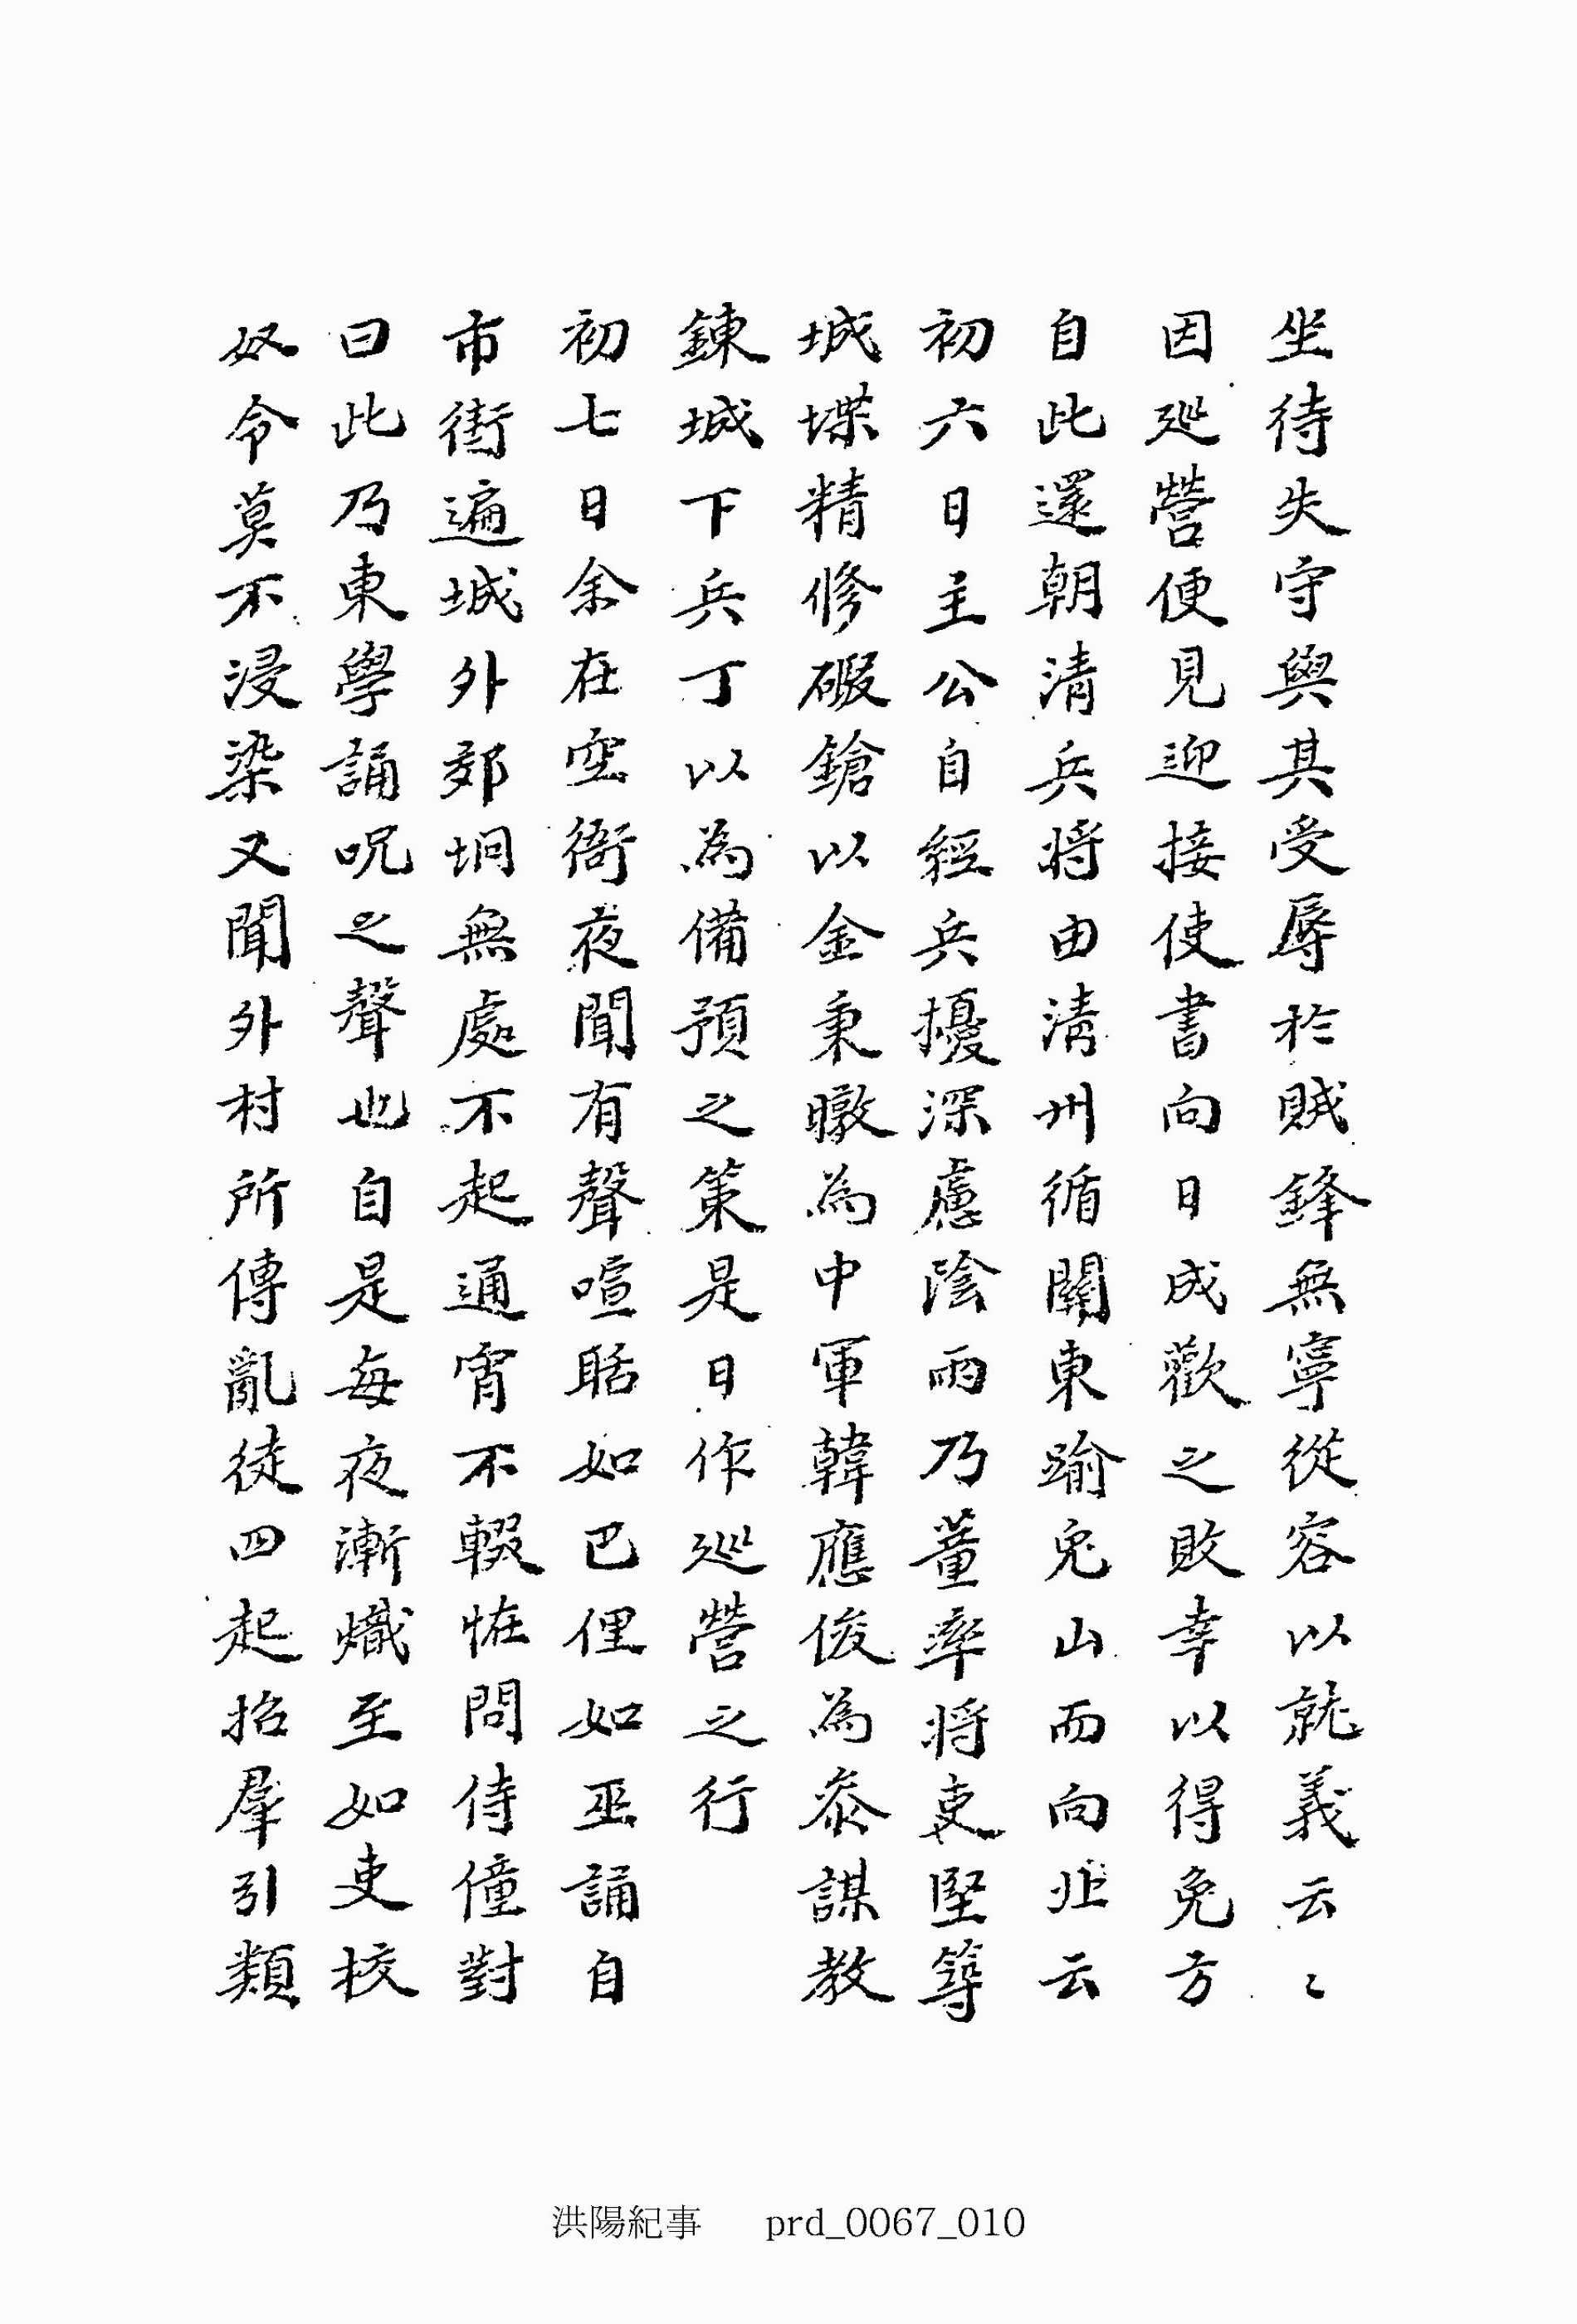 坐待失守與其受辱於賊鋒無寧從容以就義云〻
因延營便見迎接使書向日成歡之敗幸以得免方
自此還朝清兵將由淸州循關東踰兎山而向北云
初六日主公自經兵擾深慮陰雨乃董率將吏堅築
城堞精修礮鎗以金秉暾為中軍韓應俊為叅謀教
鍊城下兵丁以為備預之策是日作巡營之行
初七日余在空衙夜聞有聲喧聒如巴俚如巫誦自
市街遍城外郊坰無處不起通宵不輟恠問侍僮對
曰此乃東學誦呪之聲也自是每夜漸熾至如吏校
奴令莫不浸染又聞外村所傳亂徒四起招羣引類
洪陽紀事 prd_0067_010